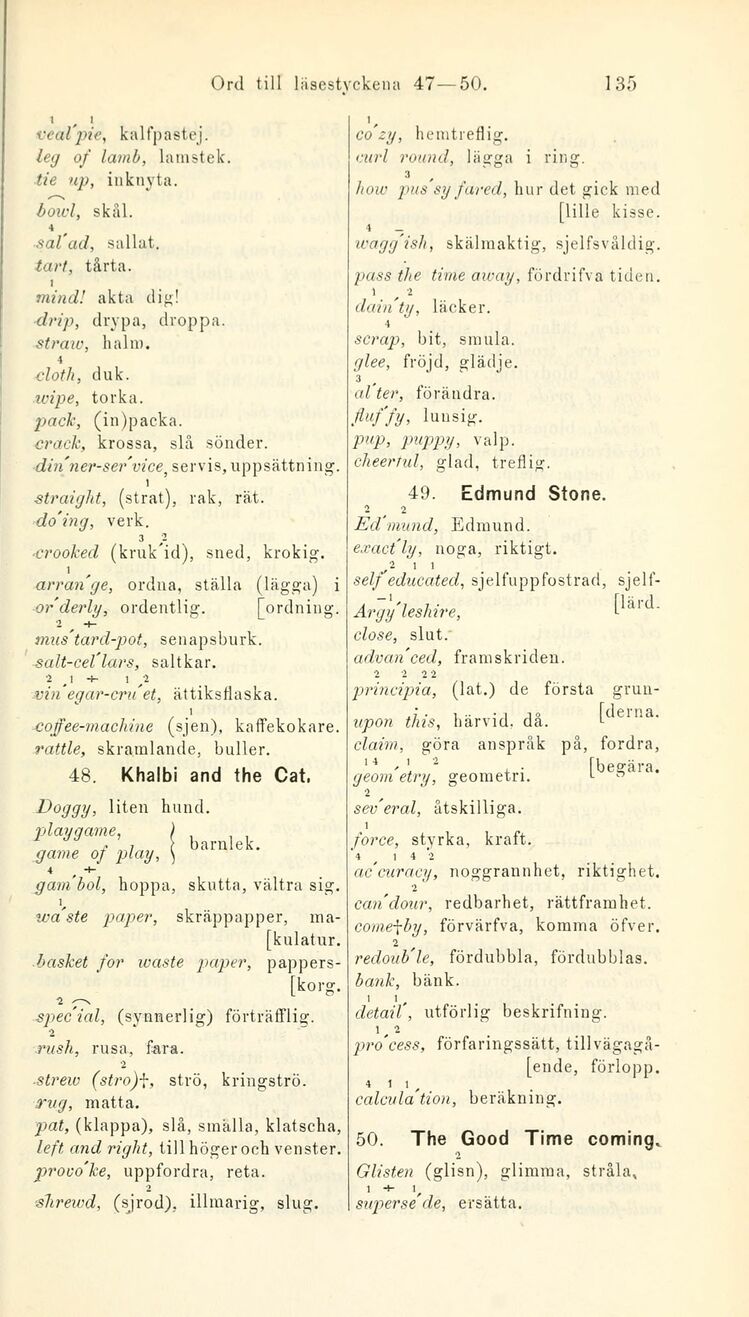 Ord till läsestyckena 47—50. 135
veal'pie, kalfpastej.
leg of lamb, lamstek.
tie up, inknyta.
bowl, skål.
sal'ad, sallat.
tart, tårta.
mind! akta dig!
drip, drypa, droppa.
straw, halm.
cloth, duk.
wipe, torka.
pack, (in)packa.
crack, krossa, slå sönder.
din'ner-ser'vice, servis, uppsättning.
straight, (strat), rak, rät.
do'ing, verk.
crooked (kruk'id), sned, krokig.
arran'ge, ordna, ställa (lägga) i
or'derly, ordentlig. [ordning.
mus'tard-pot, senapsburk.
salt-cel'lars, saltkar.
vin'egar-cru'et, ättiksflaska.
coffee-machine (sjen), kaffekokare.
rattle, skramlande, buller.
48. Khalbi and the Cat.
Doggy, liten hund.
playgame, }
game of play, } barnlek.
gam'bol, hoppa, skutta, vältra sig.
wa'ste paper, skräppapper, ma-
[kulatur.
basket for waste paper, pappers-
[korg.
spec'ial, (synnerlig) förträfflig.
rush, rusa, fara.
strew (stro)†, strö, kringströ.
rug, matta.
pat, (klappa), slå, smälla, klatscha,
left and right, till höger och venster.
provo'ke, uppfordra, reta.
shrewd, (sjrod), illmarig, slug.
co'zy, hemtreflig.
curl round, lägga i ring.
how pus'sy fared, hur det gick med
[lille kisse.
wagg'ish, skälmaktig, sjelfsvåldig.
pass the time away, fördrifva tiden.
dain'ty, läcker.
scrap, bit, smula.
glee, fröjd, glädje.
al'ter, förändra.
fluf'fy, lunsig.
pup, puppy, valp.
cheerful, glad, treflig.
49. Edmund Stone.
Ed'mund, Edmund.
exact'ly, noga, riktigt.
self'educated, sjelfuppfostrad, sjelf-
Argy'leshire, [lärd.
close, slut.
advan'ced, framskriden.
principia, (lat.) de första grun-
upon this, härvid, då. [derna.
claim, göra anspråk på, fordra,
geom'etry, geometri. [begära.
sev'eral, åtskilliga.
force, styrka, kraft.
ac'curacy, noggrannhet, riktighet.
can'dour, redbarhet, rättframhet.
come†by, förvärfva, komma öfver.
redoub'le, fördubbla, fördubblas.
bank, bänk.
detail', utförlig beskrifning.
pro'cess, förfaringssätt, tillvägagå-
[ende, förlopp.
calcula'tion, beräkning.
50. The Good Time coming.
Glisten (glisn), glimma, stråla,
superse'de, ersätta.